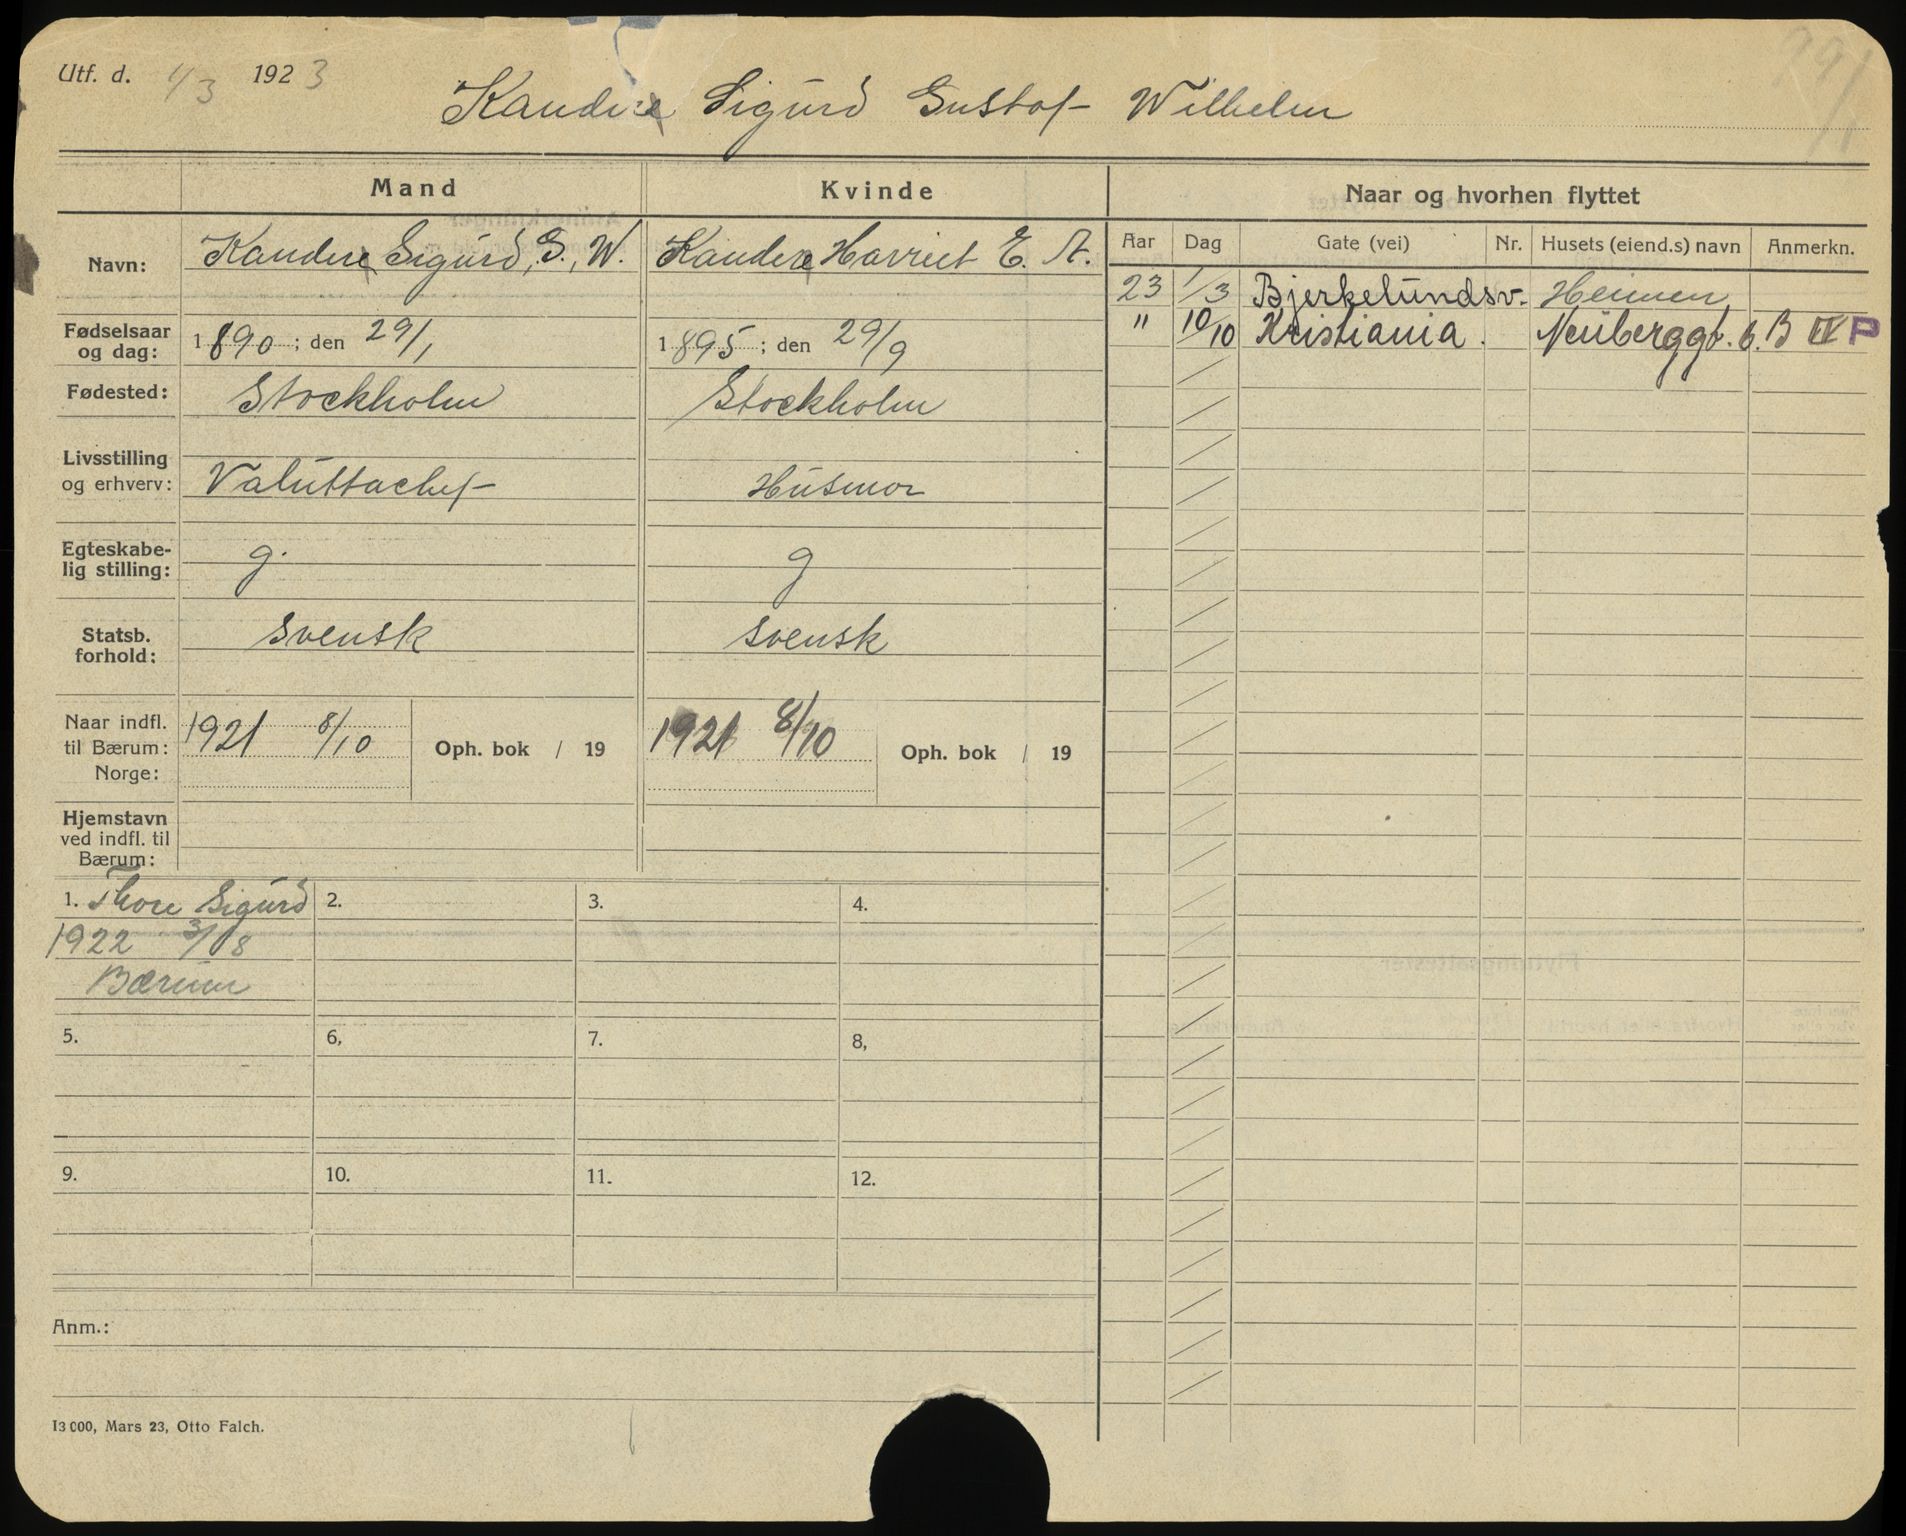 Utf. d. 1/3 1923
Sigurd Gustaf Wilhelm
Mand
Kvinde
Naar og hvorhen flyttet
Aar Dag Gate (vei) Nr. Husets (eiend.s) navn Anmerkn.
Navn: Sigurd, G., W. Harriet E. A.
23 1/3 Bjerkelundsv. Heimen
" 10/10 Kristiania. Neuberggt. 6. B IV P
Fødselsaar
og dag: 1890; den 29/1 1895; den 29/9
Fødested: Stockholm Stockholm
Livsstilling
og erhverv: Valuttachef Husmor
Egteskabe-
lig stilling: g. g
Statsb.
forhold: svensk svensk
Naar indfl.
til Bærum: 1921 8/10 Oph. bok / 19 1921 8/10 Oph. bok / 19
Norge:
Hjemstavn
ved indfl. til
Bærum:
1. Thore Sigurd 2. 3. 4.
1922 3/8
Bærum
5. 6, 7. 8,
9. 10. 11. 12.
Anm.:
13 000, Mars 23, Otto Falch.